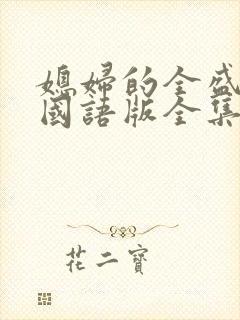 媳婦的全盛
國語版全集
花二寶